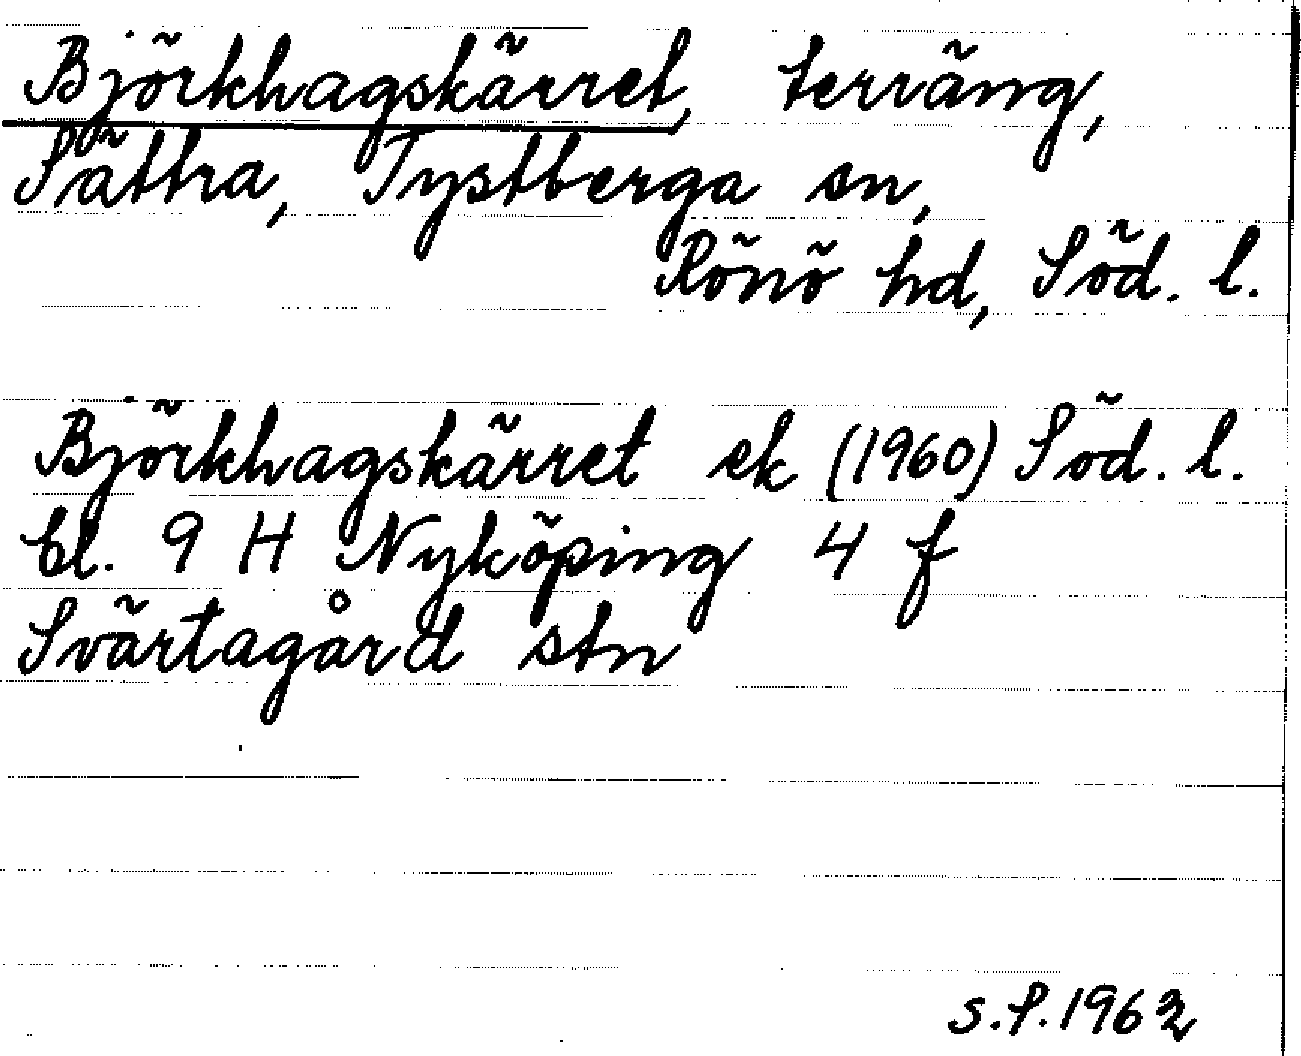 Björkhagskärret, terräng,
Sättra, Tystberga sn,
Rönö hd, Söd. l.
Björkhagskärret ek (1960) Söd. l.
bl. 9 H Nyköping 4 f
Svärtagård stn
S.S. 1962